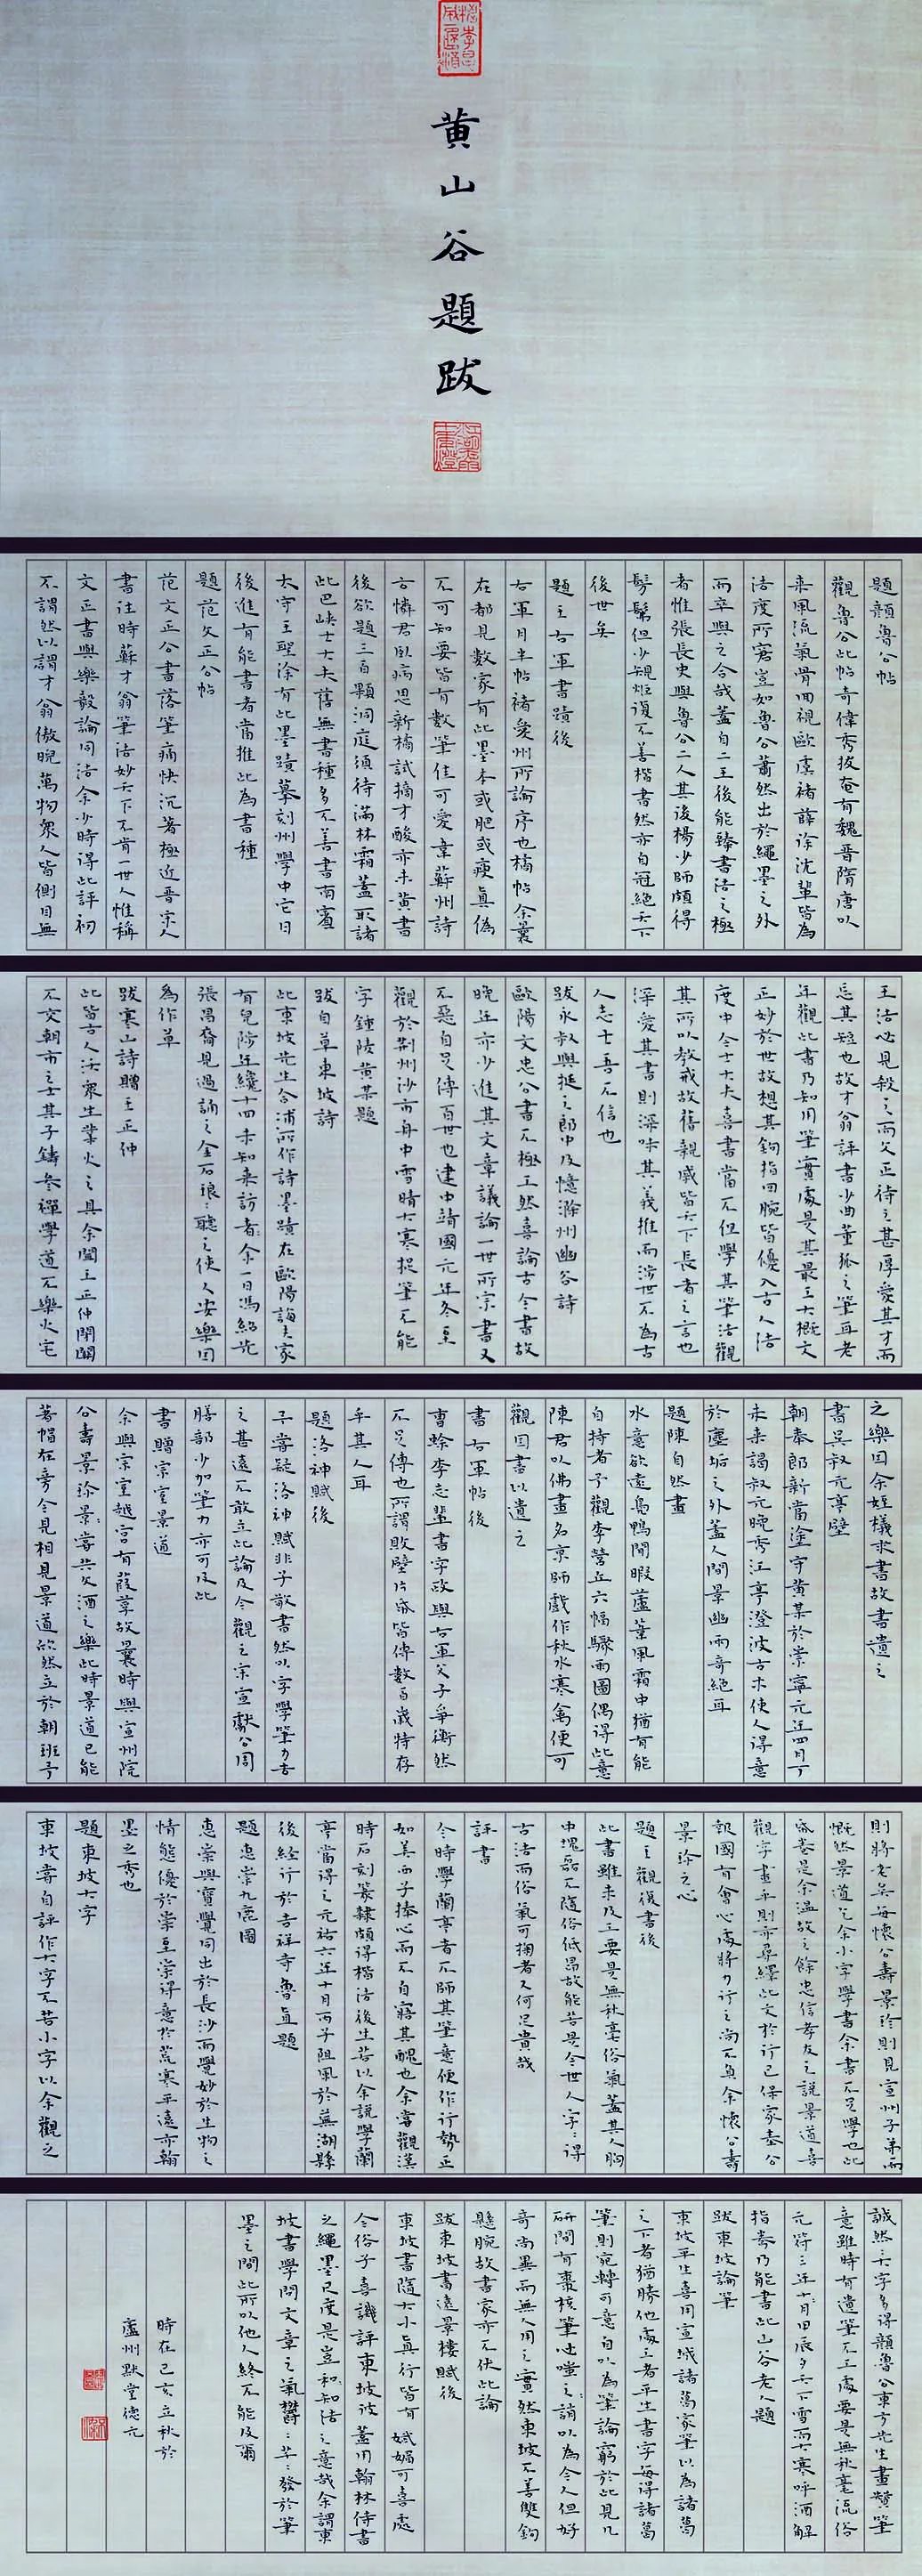 黄山谷題跋
題顔魯公帖
觀魯公此帖奇偉秀拔奄有魏晉隋唐以
来風流氣骨回視歐虞褚薛徐沈輩皆為
法度所窘豈如魯公蕭然出於繩墨之外
而卒與之合哉蓋自二王後能臻書法之極
者惟張長史與魯公二人其後楊少師頗得
髣髴但少規矩復不善楷書然亦自冠絕天下
後世矣
題王右軍書蹟後
右軍月半帖褚愛州所論序也橘帖余曩
在都見數家有此墨本或肥或瘦真偽
不可知要皆有數筆佳可愛韋蘇州詩
云憐君卧病思新橘試摘才酸亦未黄書
後欲題三百顆洞庭須待滿林霜蓋取諸
此巴峽士大夫落無書種多不善書南賓
太守王聖涂有此墨蹟摹刻州學中它日
後進有能書者當推此為書種
題范文正公帖
范文正公書落筆痛快沉著極近晋宋人
書往時蘇才翁筆法妙天下不肯一世人惟稱
文正書與樂毅論同法余少時得此評初
不謂然以謂才翁傲睨萬物衆人皆側目無
王法必見殺之而文正待之甚厚愛其才而
忘其短也故才翁評書少曲董狐之筆耳老
年觀此書乃知用筆實處是其最工大概文
正妙於世故想其鉤指回腕皆優入古人法
度中今士大夫喜書當不但學其筆法觀
其所以教戒故舊親戚皆天下長者之言也
深愛其書則深味其義推而涉世不為古
人志士吾不信也
跋永叔與挺之郎中及憶滁州幽谷詩
歐陽文忠公書不極工然喜論古今書故
晚年亦少進其文章議論一世所宗書又
不惡自足傳百世也建中靖國元年冬至
觀於荆州沙市舟中雪晴大寒捉筆不能
字鍾陵黄某題
跋自草東坡詩
此東坡先生合浦所作詩墨蹟在歐陽誨夫家
有兒陟年纔十四未知来訪者余一日馮紹先
張禹裔見過誦之金石琅〻聽之使人安樂因
為作草
跋寒山詩贈王正仲
此皆古人沃衆生業火之具余聞王正仲閉關
不交朝市之士其子鑄參禪學道不樂火宅
之樂因余姪樸求書故書遺之
書吴叔元亭壁
朝奉郎新當塗守黄某於崇寧元年四月丁
未来謁叔元晚秀江亭澄波古木使人得意
於塵垢之外蓋人閒景幽兩奇絕耳
題陳自然畫
水意欲遠鳬鴨閒暇蘆葦風霜中猶有能
自持者予觀李營丘六幅驟雨圖偶得此意
陳君以佛畫名京師戲作秋水寒禽便可
觀因書以遺之
書右軍帖後
曹蜍李志輩書字政與右軍父子争衡然
不足傳也所謂敗壁片帋皆傳數百歲特存
乎其人耳
題洛神賦後
予嘗疑洛神賦非子敬書然以字學筆力去
之甚遠不敢立此論及今觀之宋宣獻公周
膳部少加筆力亦可及此
書贈宗室景道
余與宗室越宫有葭莩故曩時與宣州院
公壽景珍景〻嘗共文酒之樂此時景道已能
著帽在旁今見相見景道欣然立於朝班予
則將老矣每懷公壽景珍則見宣州子弟而
慨然景道乞余小字學書余書不足學也此
帋卷是余温故之餘忠信孝友之説景道喜
觀字畫乎則亦尋繹此文於行已保家奉公
報國有會心處將力行之尚不負余懷公壽
景珍之心
題王觀復書後
此書雖未及工要是無秋毫俗氣蓋其人胸
中塊磊不隨俗低昂故能若是今世人字〻得
古法而俗氣可掬者又何足貴哉
評書
今時學蘭亭者不師其筆意便作行勢正
如美西子捧心而不自寤其醜也余嘗觀漢
時石刻篆隸頗得楷法後生若以余説學蘭
亭當得之元祐六年十月丙子阻風於蕪湖縣
後經行於吉祥寺魯直題
題惠崇九鹿圖
惠崇與寶覺同出於長沙而覺妙於生物之
情態優於崇至崇得意於荒寒平遠亦翰
墨之秀也
題東坡大字
東坡嘗自評作大字不若小字以余觀之
誠然〻大字多得顔魯公東方先生畫贊筆
意雖時有遣筆不工處要是無秋毫流俗
元符三年十月甲辰夕天下雪而大寒呼酒解
指驁乃能書此山谷老人題
跋東坡論筆
東坡平生喜用宣城諸葛家筆以為諸葛
之下者猶勝他處工者平生書字每得諸葛
筆則宛轉可意自以為筆論窮於此見几
研間有棗核筆必嗤〻誚以為今人但好
奇尚異而無人用之實然東坡不善雙鉤
懸腕故書家亦不伏此論
跋東坡書遠景樓賦後
東坡書隨大小真行皆有嫵媚可喜處
今俗子喜譏評東坡彼蓋用翰林侍書
之繩墨尺度是豈和知法之意哉余謂東
坡書學問文章之氣鬱〻芊〻發於筆
墨之間此所以他人終不能及爾
時在己亥立秋於
廬州默堂德元